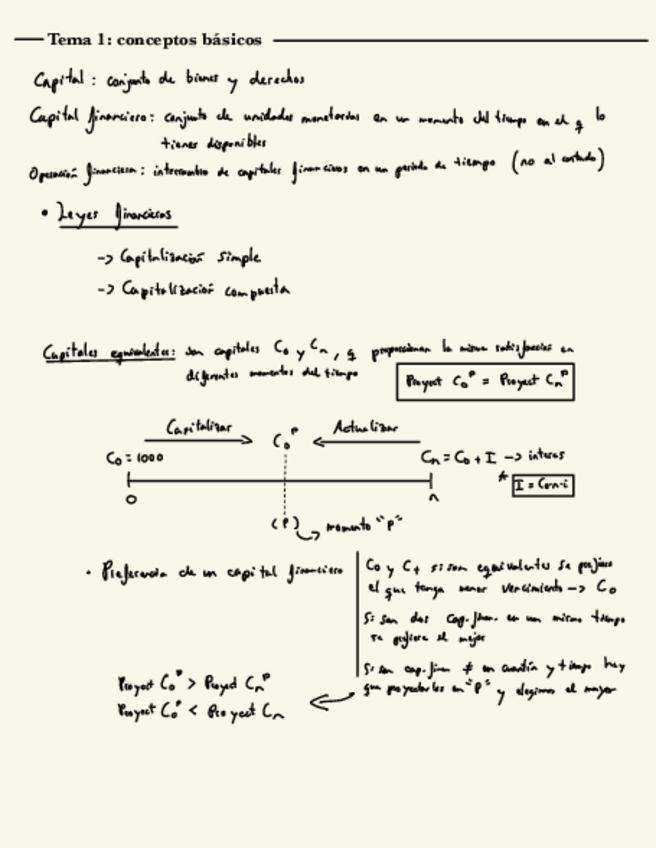 Tema 1: conceptos básicos
Capital : conjunto de bienes y derechos
Capital financiero: conjunto de unidades monetarias en un momento del tiempo en el q lo
tienes disponibles
Operación financiera: intercambio de capitales financieros en un periodo de tiempo (no al contado)
• Leyes financieras
-> Capitalización simple
-> Capitalización compuesta
Capitales equivalentes: son capitales Co y Cn, q proporcionan la misma satisfacción en
diferentes momentos del tiempo
Proyect Co^P = Proyect Cn^P
Capitalizar Co^P Actualizar
Co = 1000 Cn = Co + I -> interes
* I = Co·n·i
0 n
(P) momento "P"
• Preferencia de un capital financiero
Co y Ct si son equivalentes se prefiere
el que tenga menor vencimiento -> Co
Si son dos cap. finan. en un mismo tiempo
se prefiere el mejor
Si son cap. finan ≠ en cuantía y tiempo hay
que proyectarlos en "P" y elegimos el mayor
Proyect Co^P > Proyect Cn^P
Proyect Co^P < Proyect Cn